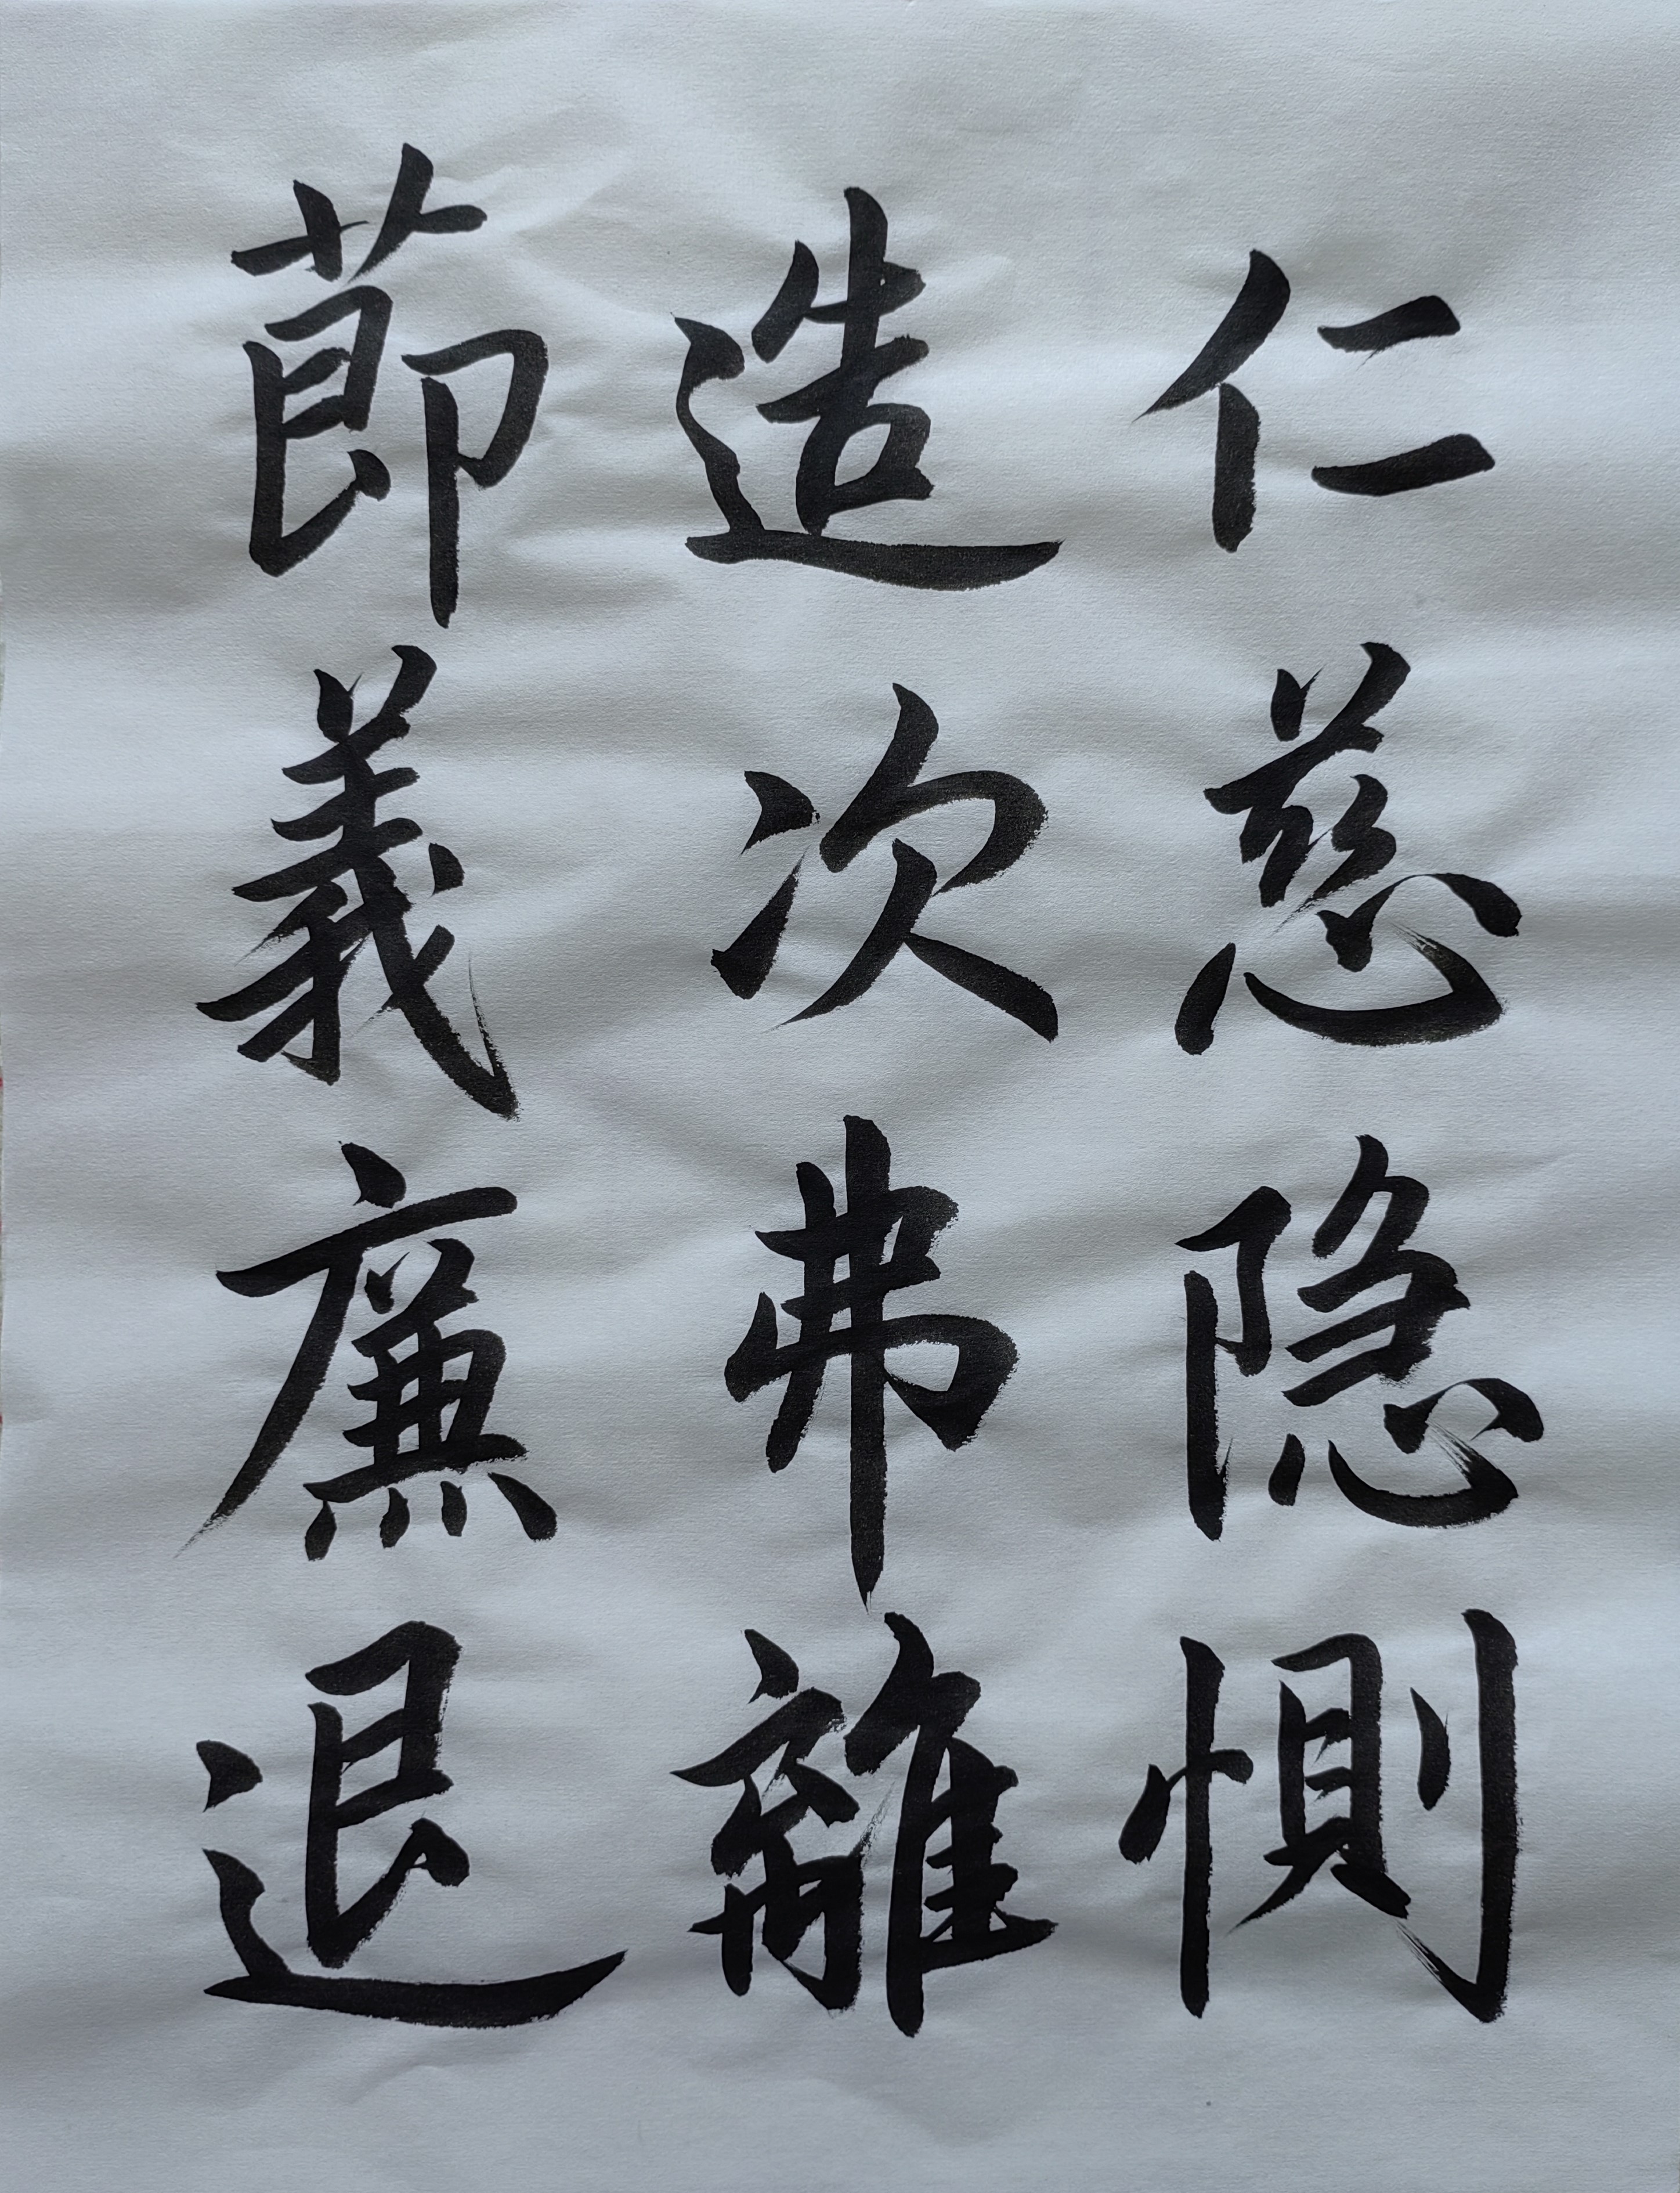 仁慈隐惻
造次弗離
節義廉退